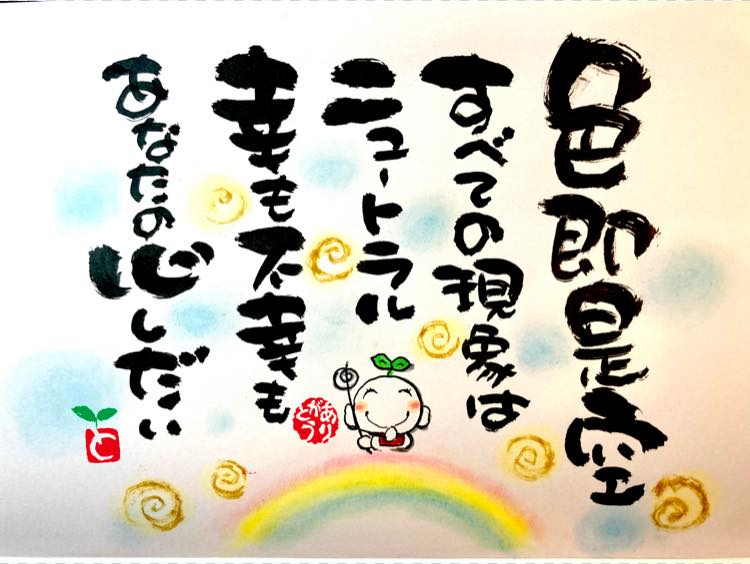 色即是空
すべての現象は
ニュートラル
幸も不幸も
あなたの心しだい
ありがとう
と